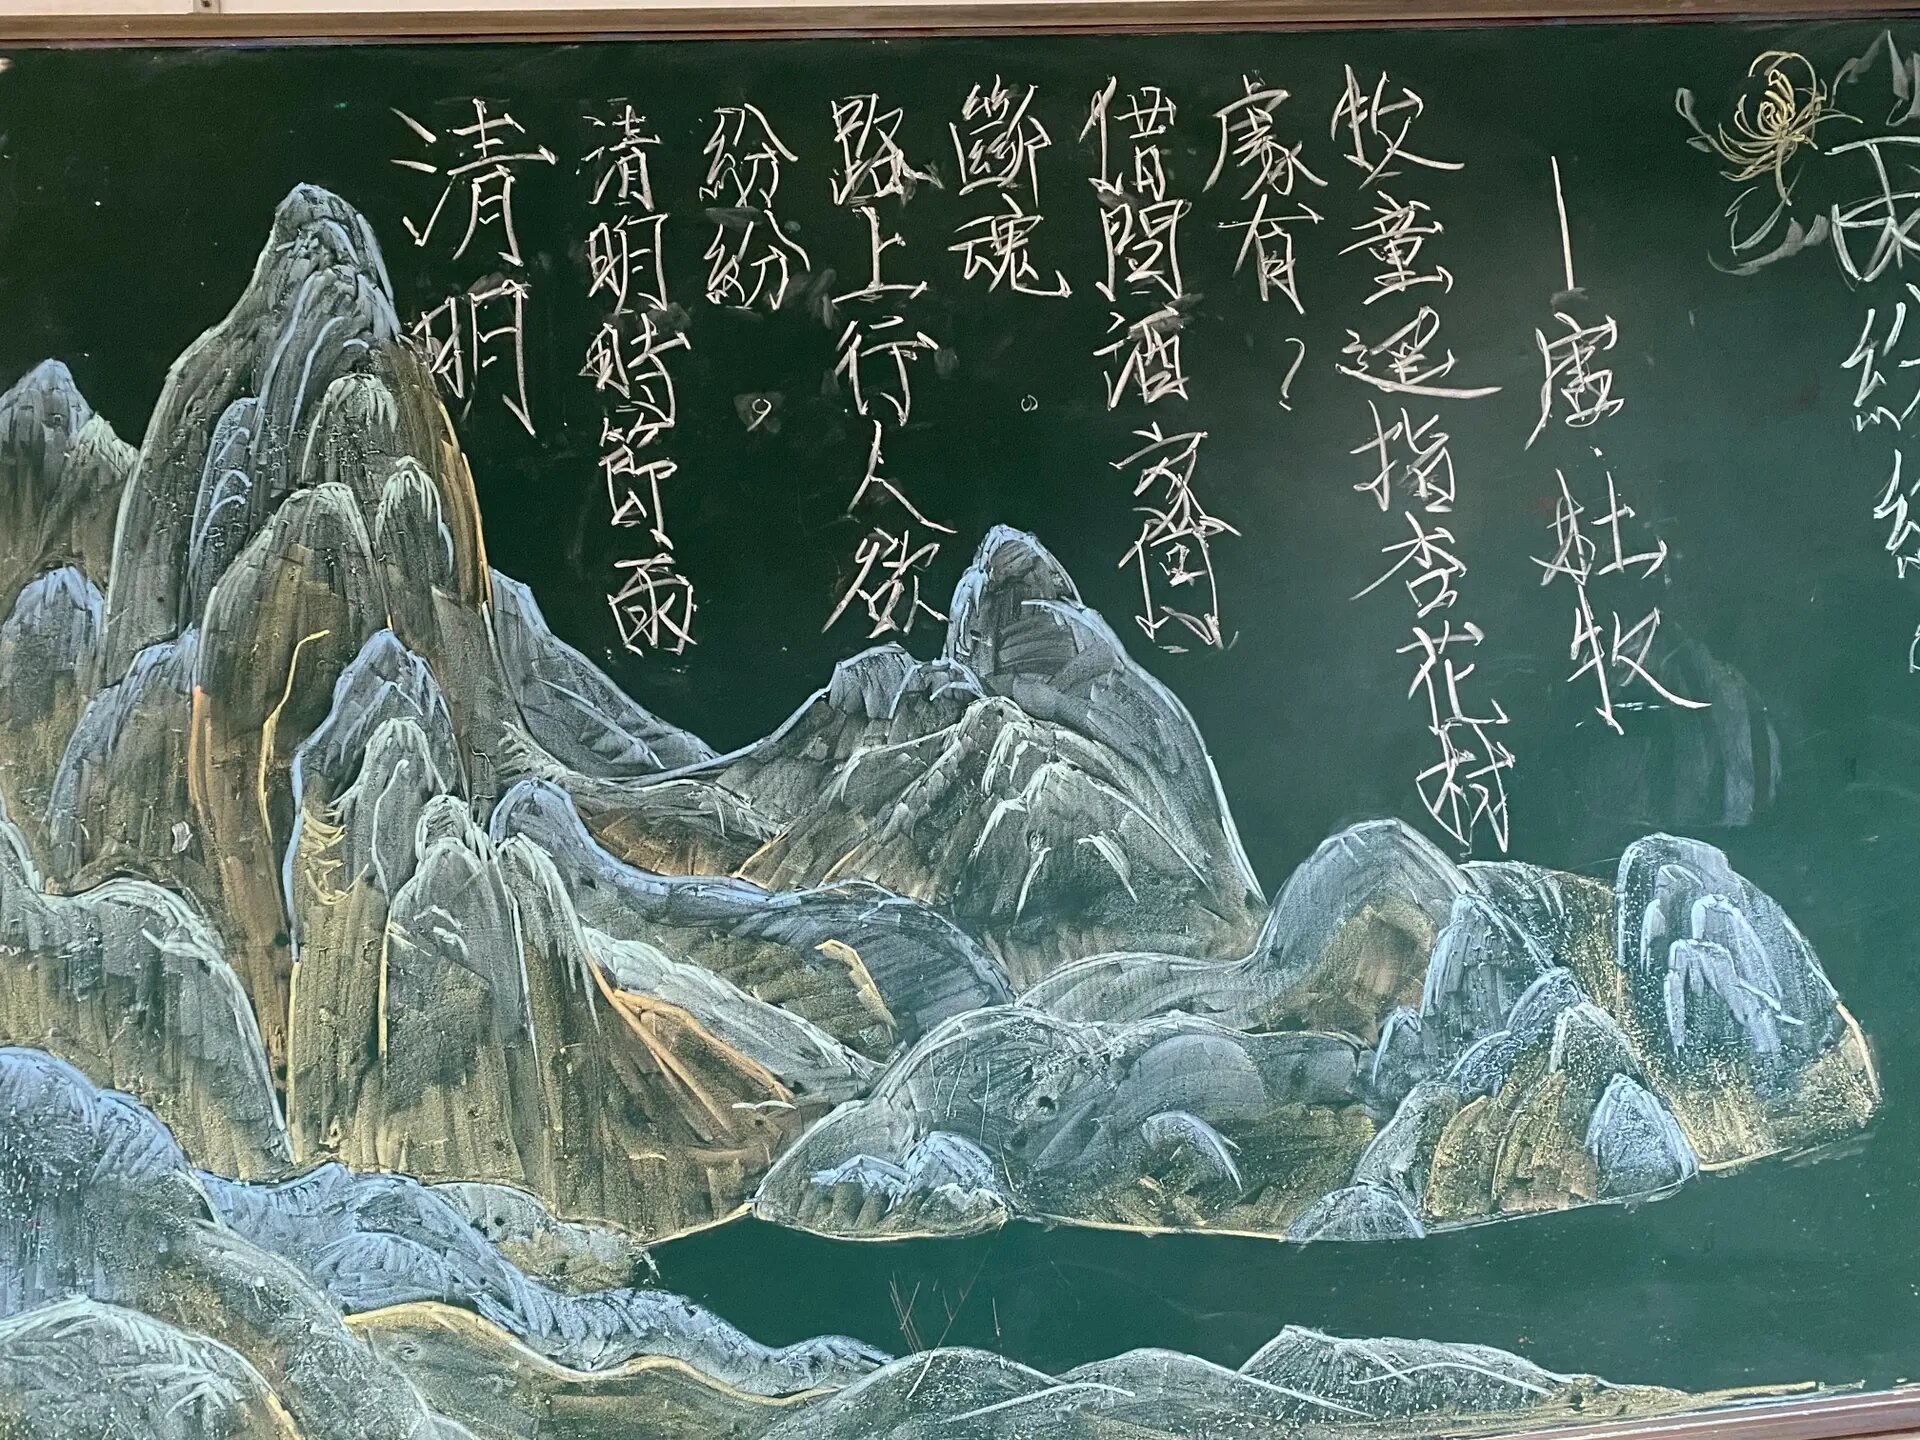 清明
清明時節雨
紛紛，
路上行人欲
斷魂。
借問酒家何
處有？
牧童遥指杏花树
—唐·杜牧